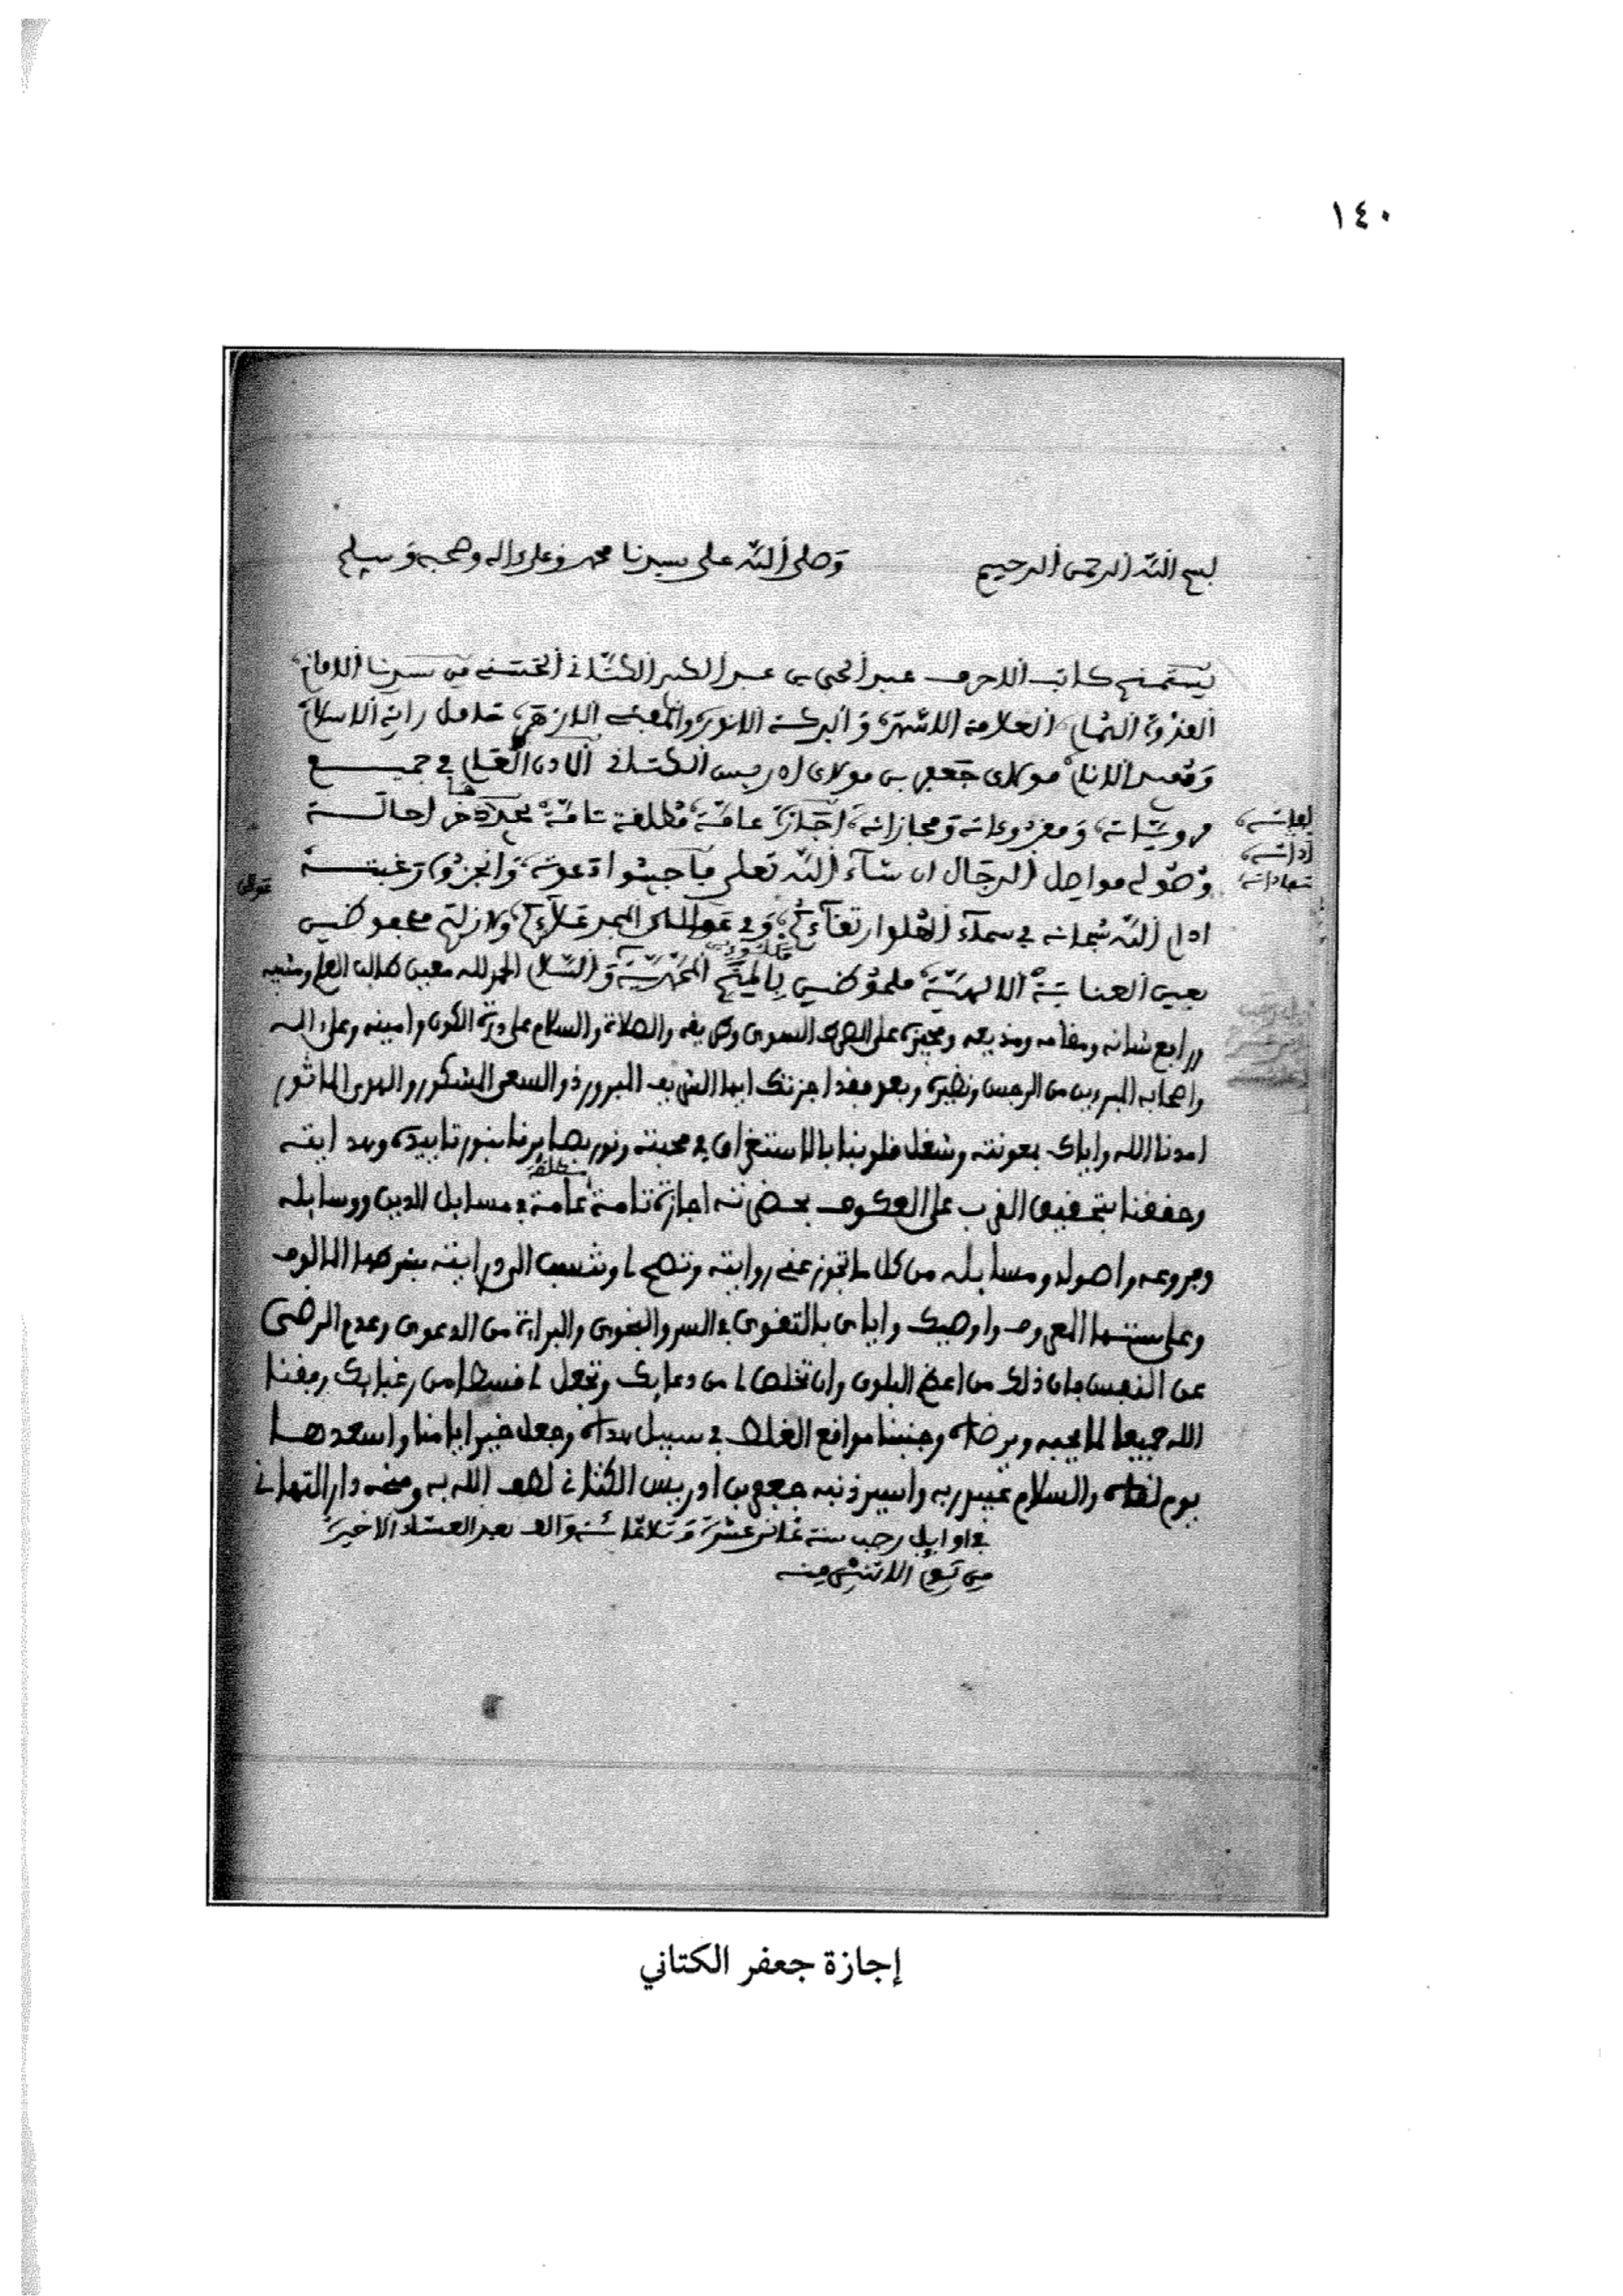 ١٤٠
بسم الله الرحمن الرحيم وصلى الله على سيدنا محمد وعلى ءاله وصحبه وسلم
يستمنح كاتب الاحرف عبد الحي بن عبد الكبير الكتاني الحسني من سيدنا الامام
القدوة الهمام العلامة الاشهر والبركة الانور الازهر حامل راية الاسلام
الانام مولاي جعفر بن مولاي ادريس الكتاني العام في جميع
مروياته ومقروءاته ومجازاته اجازة عامة مطلقة تامة
الرجال ان شاء الله تعلى فأجيبوا دعوته وانجزوا رغبته
ادام الله سبحانه في سماء العلو ارتقاءكم ولا زلتم محفوظين
بعين العناية الالهية ملحوظين المحمدية والسلام الحمد لله معين طالب العلم ومثيبه
ورافع شانه ومقامه والصلاة والسلام على درة الكون وامينه وعلى اله
واصحابه المبرءين من الرجس وبعد فقد اجزتك ايها الشريف المبرور ذو السعي المشكور والهدى الماثور
امدنا الله واياك بمعونته وشغل قلوبنا بالاستغراق في محبته ونور بصايرنا بنور تاييده وهدايته
وحققنا بتحقيق القرب على العكوف بحضرته اجازة تامة عامة مطلقة في مسايل الدين ووسايله
وفروعه واصوله ومسايله من كل ما تجوز عني روايته وتصح لي وتنسب الي درايته بشرطها المالوف
وعلى سنتها المعروف واوصيك واياي بالتقوى في السر والنجوى والبراءة من الدعوى وعدم الرضى
عن النفس فان ذلك من اعظم البلوى وان تخلص لي من دعايك وتجعل لي قسطا من رغبايك وفقنا
الله جميعا لما يحبه ويرضاه وجنبنا مواقع الغلط في سبيل هداه وجعل خير ايامنا واسعدها
يوم لقاه والسلام عبيد ربه واسير ذنبه جعفر بن ادريس الكتاني لطف الله به ومنحه دار التهاني
في اوايل رجب سنة ثمان عشرة وثلاثمائة والف بعد العشاء الاخيرة
من يوم الاثنين منه
إجازة جعفر الكتاني